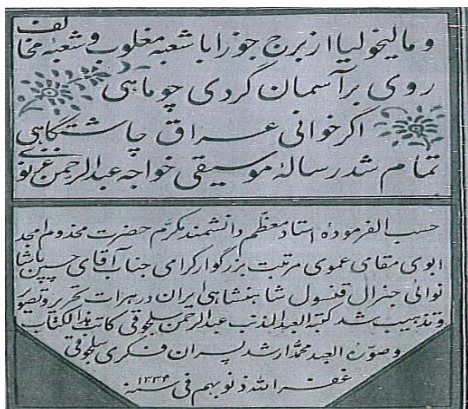 و مالیخولیا از برج جوزا با شعبه مغلوب و شعبه مخالف
روی بر آسمان گردی چو ماهی
اکر خوانی عراق چاشتگاهی
تمام شد رسالهٔ موسیقی خواجه عبدالرحمن غزنوی
حسب الفرمودهٔ استاد معظم دانشمند مکرم حضرت مخدوم امجد
ابوی مقامی عموی مرتبت بزرگوار گرامی جناب آقای حسین پاشا
نوائی جنرال قنسول شاهنشاهی ایران در هرات تحریر و تصویر
و تذهیب شد کتبه العبد المذنب عبدالرحمن سلجوقی کاتب هذا الکتاب
و صوره العبد محمد ارشد پسران فکری سلجوقی
غفر الله ذنوبهم فی سنه